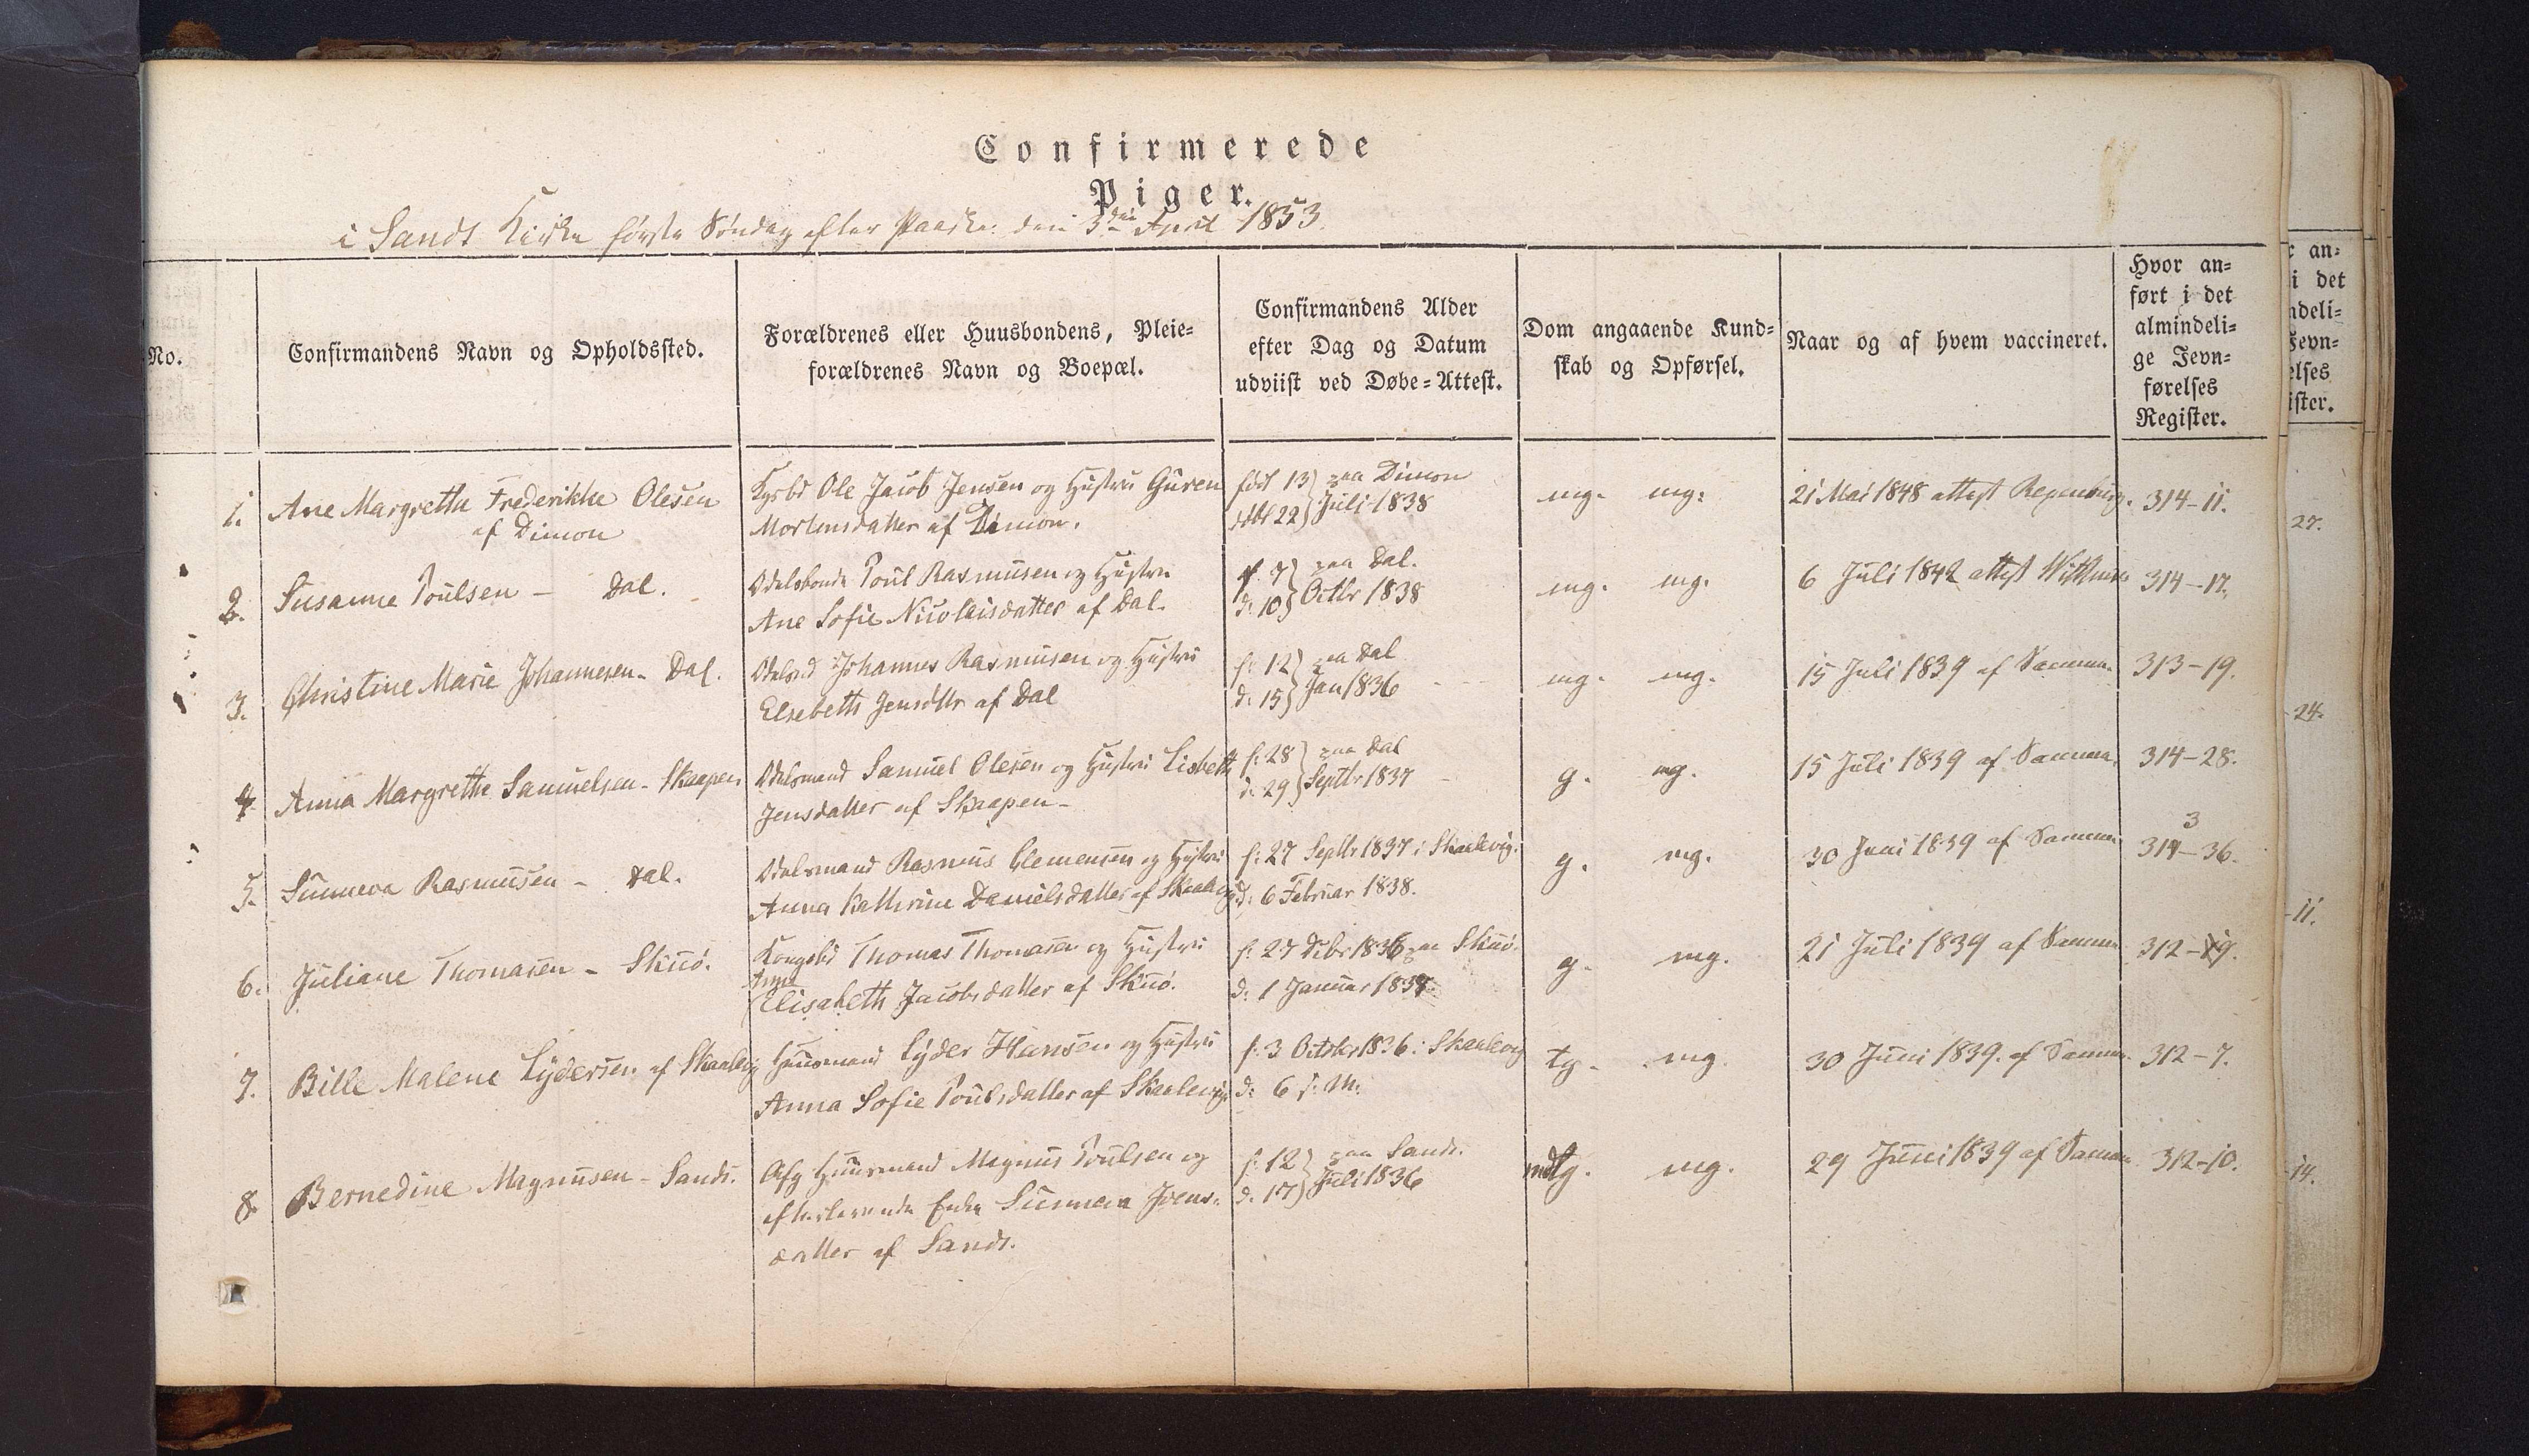 Confirmerede
Piger.
i Sands Kirke første Søndag efter Paaske den 3die April 1853.
No.
Confirmandens Navn og Opholdssted.
Forældrenes eller Huusbondens, Pleie=
forældrenes Navn og Boepæl.
Confirmandens Alder
efter Dag og Datum
udviist ved Døbe=Attest.
Dom angaaende Kund=
skab og Opførsel.
Naar og af hvem vaccineret.
Hvor an=
ført i det
almindeli=
ge Jevn=
førelses
Register.
1. Ane Margrethe Frederikke Olesen
af Dimon
Kgsbd Ole Jacob Jensen og Hustru Guren
Mortensdatter af Dimon.
født 13 } paa Dimon
døbt 22 } Juli 1838
mg. mg.
21 Mai 1848 attest Regenburg.
314-11.
2. Susanne Poulsen - Dal.
Odelsbonde Poul Rasmusen og Hustru
Ane Sofie Nicolaisdatter af Dal.
f. 7 } paa Dal.
d. 10 } Octbr 1838
mg. mg.
6 Juli 1842 attest
314-17.
3. Christine Marie Johannesen - Dal.
Odelsbd Johannes Rasmusen og Hustru
Elsebeth Jensdttr af Dal
f: 12 } paa Dal
d: 15 } Jan 1836
mg. mg.
15 Juli 1839 af Samme.
313-19.
4. Anna Margrethe Samuelsen - Skaapen
Odelsmand Samuel Olesen og Hustru Lisbeth
Jensdatter af Skaapen -
f: 28 } paa Dal
d: 29 } Septbr 1837
g. mg.
15 Juli 1839 af Samme.
314-28.
5. Sunneva Rasmusen - Dal.
Odelsmand Rasmus Clemensen og Hustru
Anna Kathrine Danielsdatter af Skaalevig
f: 27 Septbr 1837 i Skaalevig.
d: 6 Februar 1838.
g. mg.
30 Juni 1839 af Samme
3
314-36.
6. Juliane Thomasen - Skuø.
Kongsbd Thomas Thomasen og Hustru
Anne
Elisabeth Jacobsdatter af Skuø.
f. 27 Decbr 1836 paa Skuø.
d: 1 Januar 1837.
g. mg.
21 Juli 1839 af Samme
312-19.
7. Bille Malene Lydersen af Skaalevig
Huusmand Lyder Hansen og Hustru
Anna Sofie Poulsdatter af Skaalevig.
f: 3 October 1836 i Skaalevig
d: 6 s. M.
tg. mg.
30 Juni 1839. af Samme.
312-7.
8. Bernedine Magnusen - Sands.
Afg Huusmand Magnus Poulsen og
efterlevende Enke Sunneva Joens-
datter af Sands.
f: 12 } paa Sands.
d. 17 } Juli 1836
mdlg. mg.
29 Juni 1839 af Samme
312-10.
r an=
i det
ndeli=
Jevn=
elses
ister.
27.
-24.
-11.
-14.